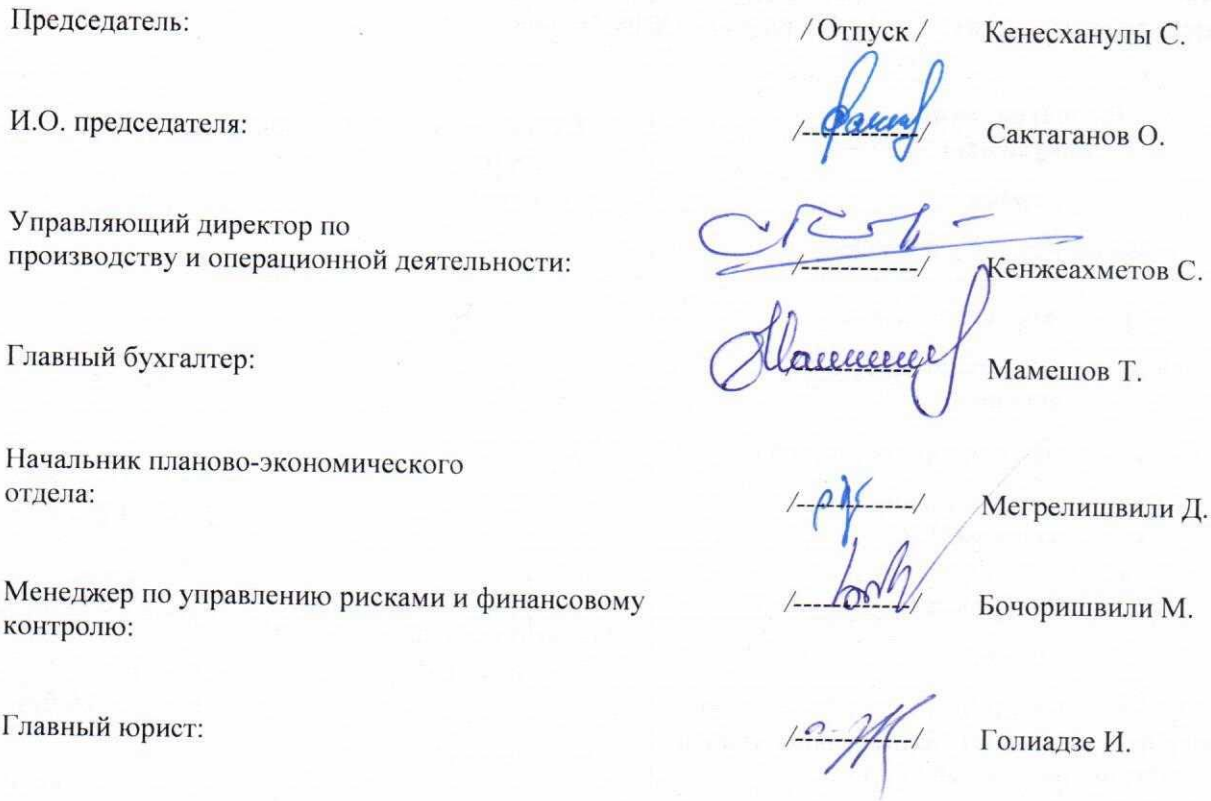 Председатель: / Отпуск / Кенесханулы С.
И.О. председателя: /------------/ Сактаганов О.
Управляющий директор по
производству и операционной деятельности: /------------/ Кенжеахметов С.
Главный бухгалтер: /------------/ Мамешов Т.
Начальник планово-экономического
отдела: /------------/ Мегрелишвили Д.
Менеджер по управлению рисками и финансовому
контролю: /------------/ Бочоришвили М.
Главный юрист: /------------/ Голиадзе И.